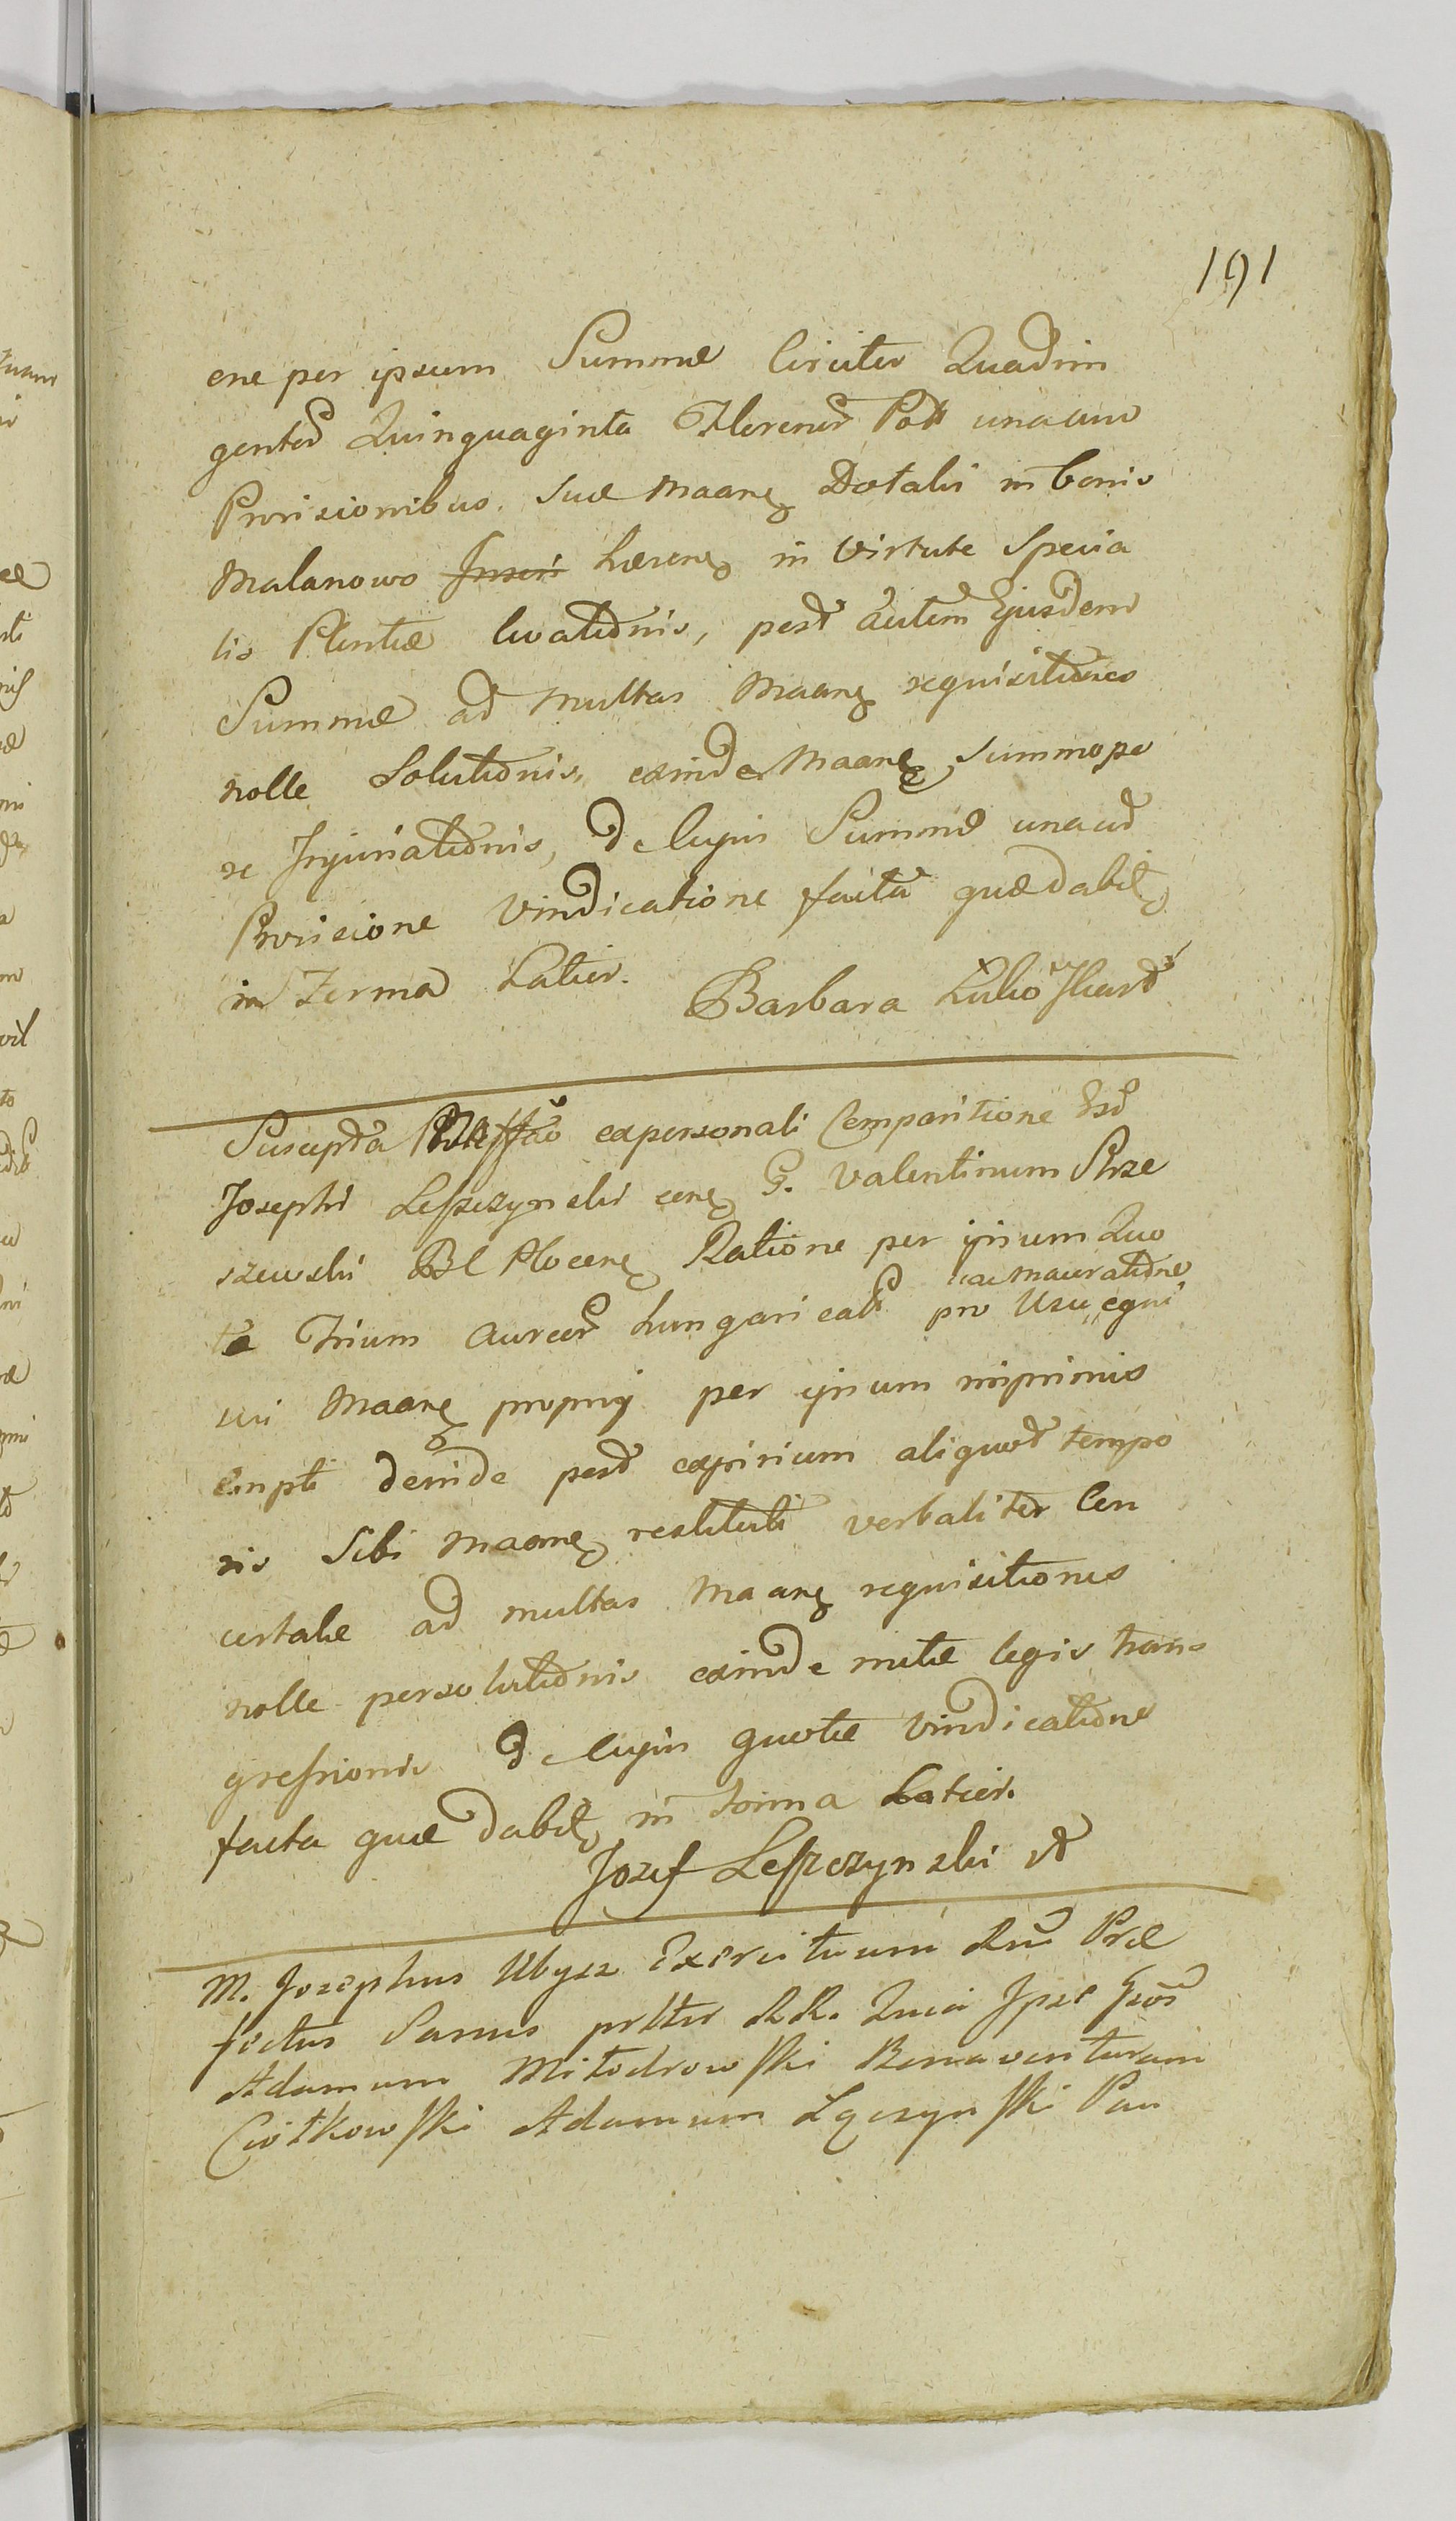 191
ene per ipsum Summæ Circiter Quadrin
gentor Quinquaginta Florenor Poll unacum
Provisionibus suæ Maanę Dotalis in bonis
Malanowo hærenę in virtute Specia
lis Plentiæ levationis, post autem Ejusdem
Summæ ad multas Maanę requisitiones
nolle Solutionis, exinde Maanę summope
re Injuriationis, de cujus Summæ unacum
Provisione vindicatione facta quæ dabilę
in Forma Latior.
Barbara
Suscepta expersonali Comparitione
Josephi Leszczynski cenę G. Valentinum Prze
szewski Bl Plocenę Ratione per ipsum Quo
tæ Trium Aureor hungaricali pro Usu equi
ac mactratione
sui Maanę proprij per ipsum inprimis
Empti deinde post expirium aliquot tempo
ris Sibi Maanę restituti verbaliter Con
certatæ ad multas Maanę requisitiones
nolle persolutionis exinde metæ legis trans
gressionis de cujus quotæ vindicatione
facta quæ dabilę in forma Latior.
Jozef Leszczynski
M. Josephus Ubysz Exercituum Præ
fectus Sanus prltr RR. Quia Ipse
Adamum Mitodrowski Bonaventuram
Ciołkowski Adamum Łączynski Pau